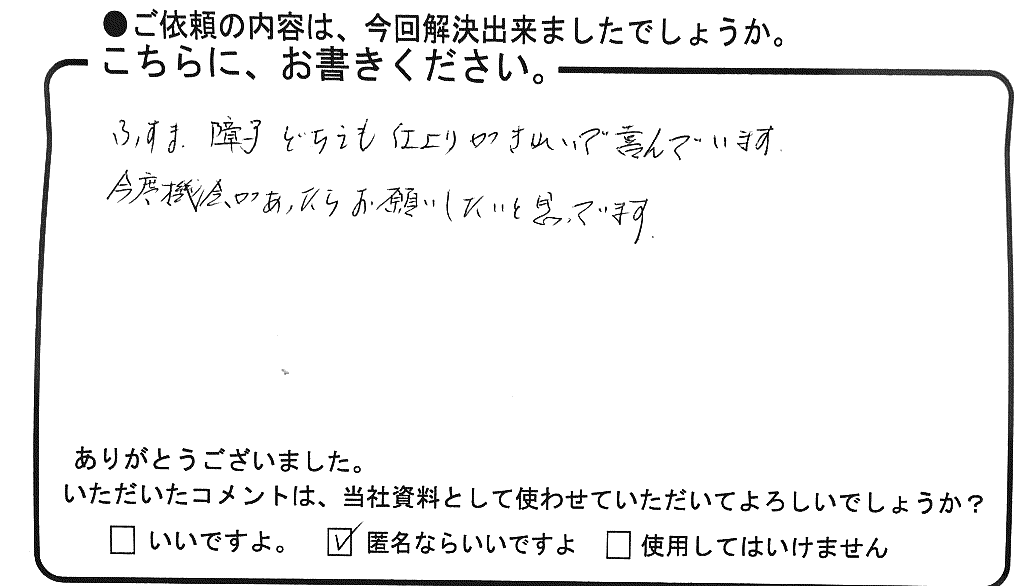 ●ご依頼の内容は、今回解決出来ましたでしょうか。
こちらに、お書きください。
ふすま 障子 どちらも 仕上りがきれいで 喜んでいます.
今度機会があったらお願いしたいと思っています.
ありがとうございました。
いただいたコメントは、当社資料として使わせていただいてよろしいでしょうか?
いいですよ。 匿名ならいいですよ 使用してはいけません